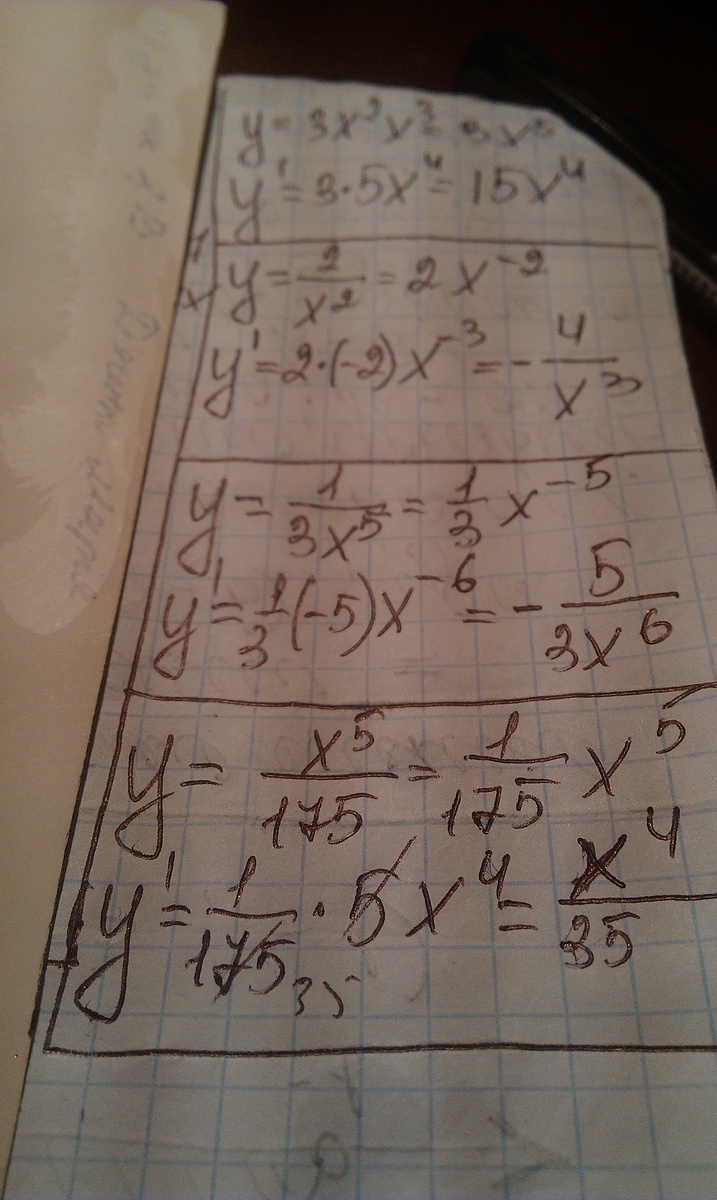 y = 3x²x³ = 3x⁵
y' = 3·5x⁴ = 15x⁴
y = 2/x² = 2x⁻²
y' = 2·(-2)x⁻³ = -4/x³
y = 1/3x⁵ = 1/3 x⁻⁵
y' = 1/3(-5)x⁻⁶ = -5/3x⁶
y = x⁵/175 = 1/175 x⁵
y' = 1/175 · 5x⁴ = x⁴/35
35